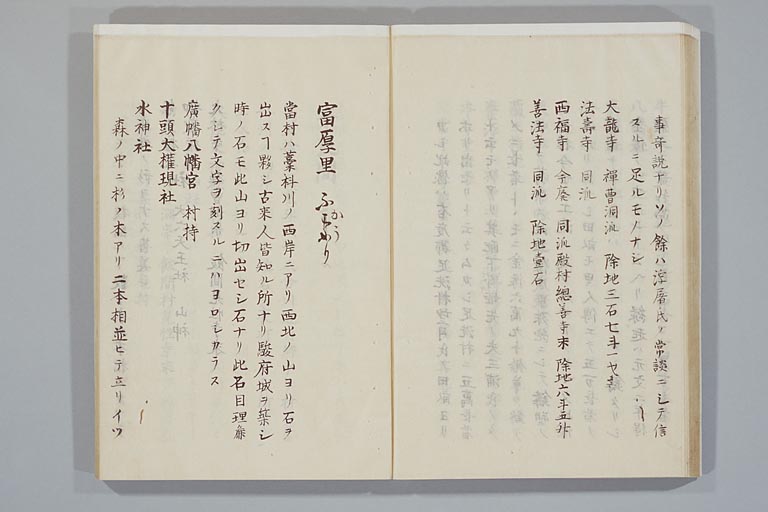 事奇説ナリソノ餘ハ浮屠氏ノ常談ニシテ信
スルニ足ルモノナシ
大龍寺 禪曹洞派 除地三石七斗一升
法壽寺 同派
西福寺 今廃 同派殿村總善寺末 除地六斗五升
善法寺 同派 除地壹石
富厚里 ふかうり
當村ハ藁科川ノ西岸ニアリ西北ノ山ヨリ石ヲ
出スヿ夥シ古来人皆知ル所ナリ駿府城ヲ築シ
時ノ石モ此山ヨリ切出セシ石ナリ此石目理麁
クシテ文字ヲ刻スルニハヨロシカラス
廣幡八幡宮 村持
十頭大權現社
水神社
森ノ中ニ杉ノ木アリ二本相並ヒテ立リイツ